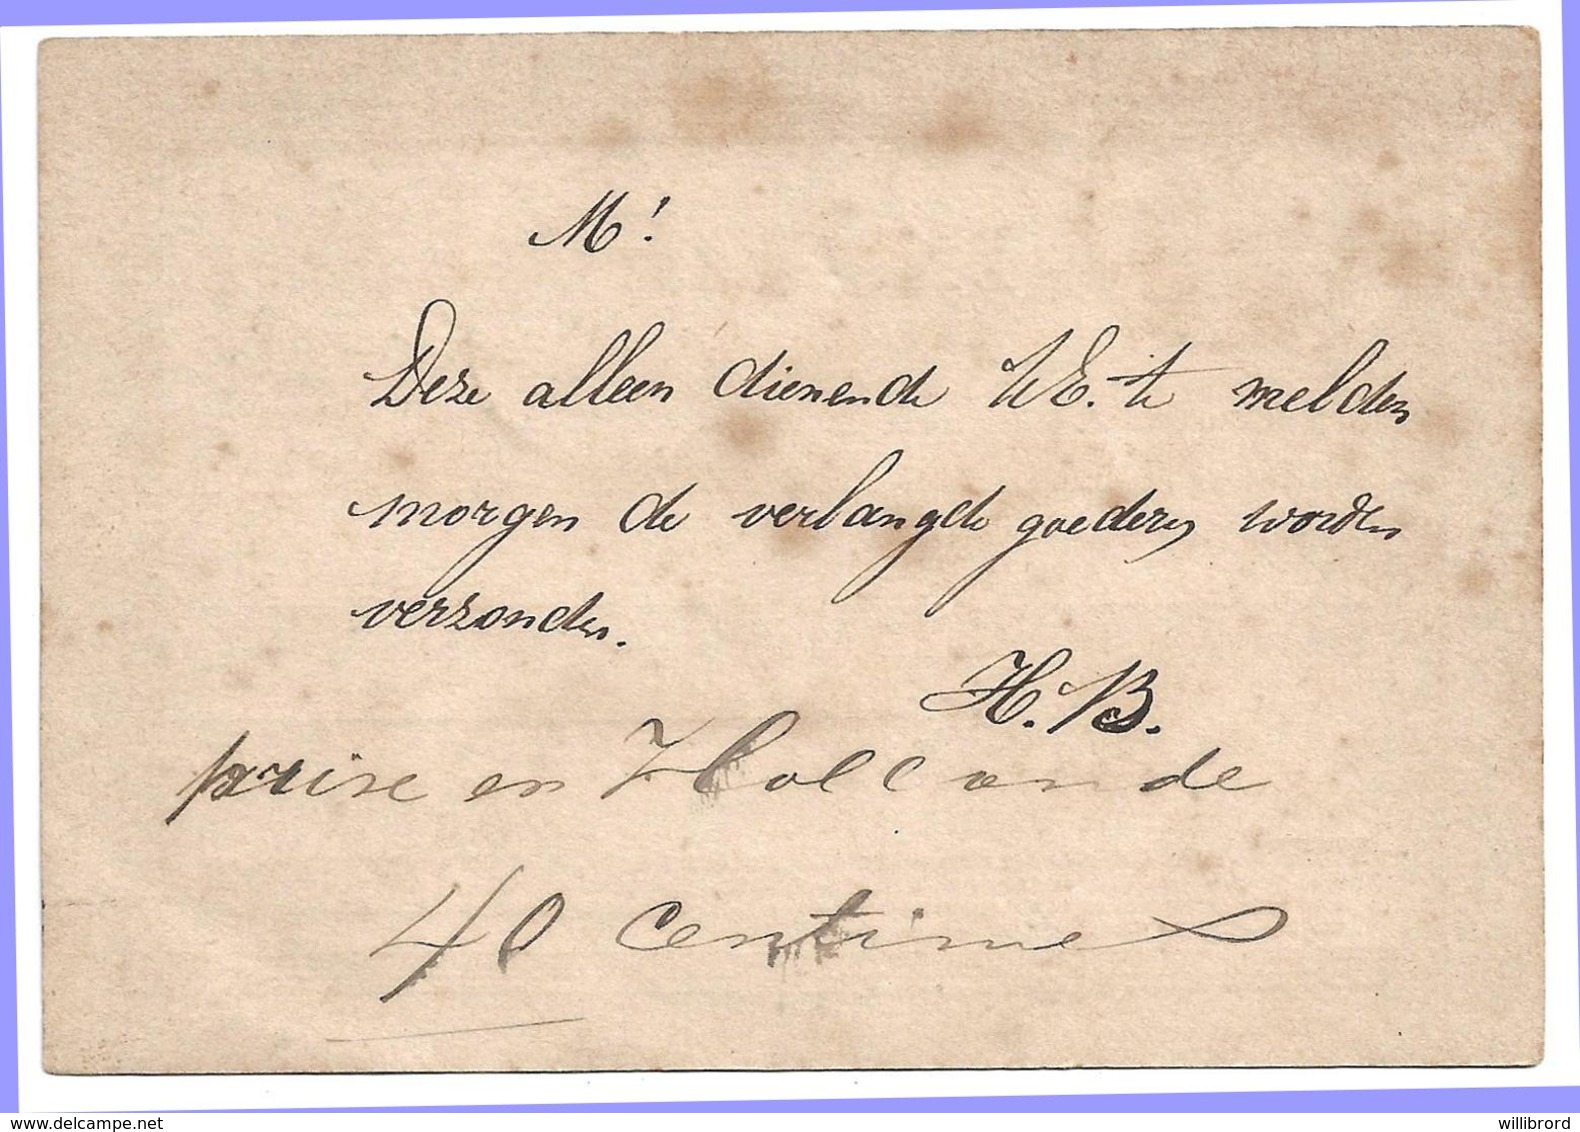 M!
Deze alleen dienende UE. te melden
morgen de verlangde goederen worden
verzonden.
H. B.
prise en Hollande
40 centimes
www.delcampe.net
willibrord